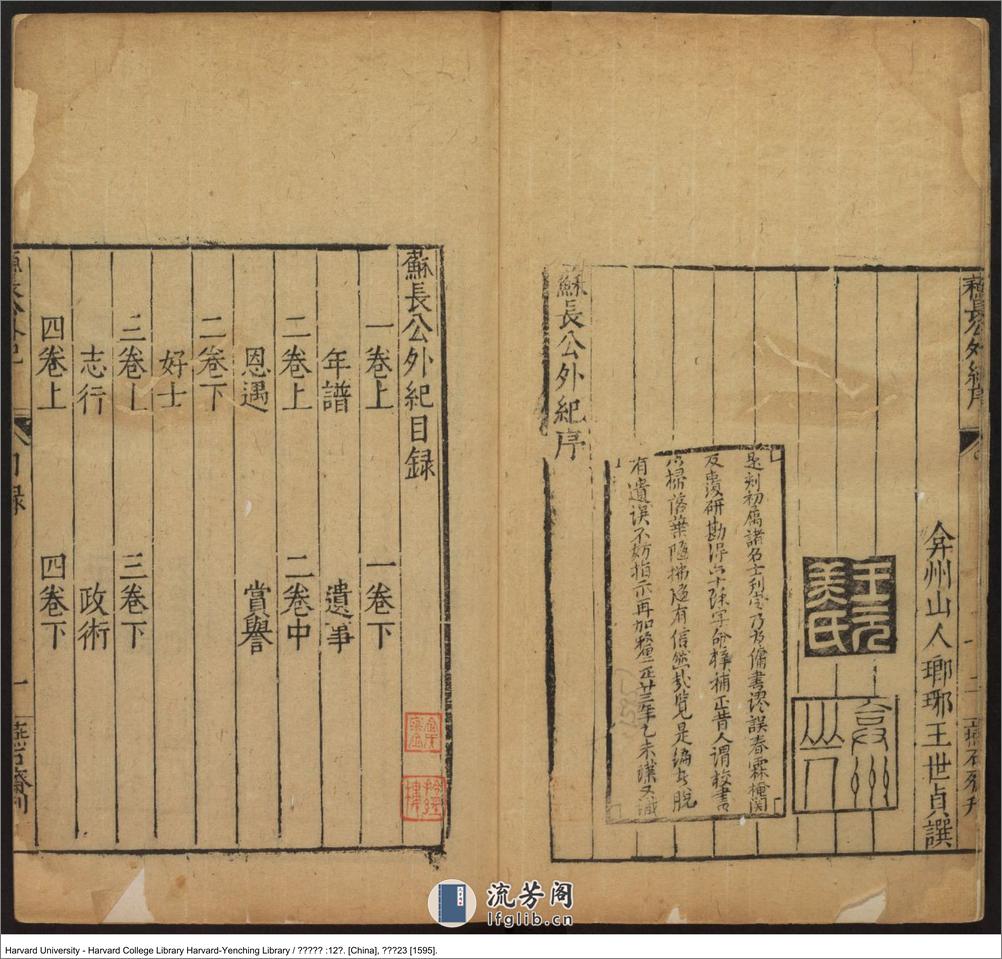 蘇長公外紀序
弇州山人瑯琊王世貞譔
王元
美氏
弇州
山人
是刻初屬諸名士利
乃為傭書謬誤春霖掩關
反覆研勘得六十餘字命梓補正昔人謂校書
如掃落葉隨掃隨有信然哉覽是編者脫
有遺誤不妨指示再加釐正廿三年乙未璞又識
蘇長公外紀序
燕石齋刊
蘇長公外紀目録
一卷上
一卷下
年譜
遺事
二卷上
二卷中
恩遇
賞譽
二卷下
好士
三卷上
三卷下
志行
政術
四卷上
四卷下
目録
一
燕石齋刊
流芳阁
lfglib.cn
Harvard University - Harvard College Library Harvard-Yenching Library / ????? :12?. [China], ???23 [1595].